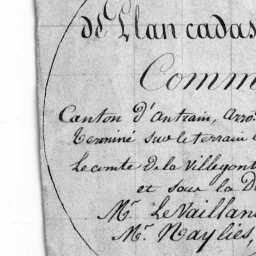 de Plan cadas
Comm
Canton d'Antrain, Arro
Terminé sur le terrain
Le comte de la Villegont
et sous la D
Mr. Le Vaillan
Mr. Naylies,